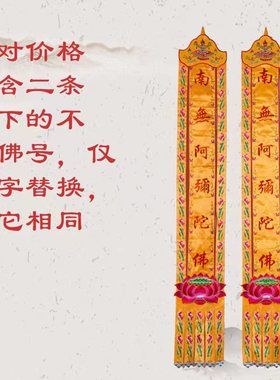 对价格
含二条
下的不
佛号，仅
字替换，
它相同
南無阿彌陀佛
南無阿彌陀佛